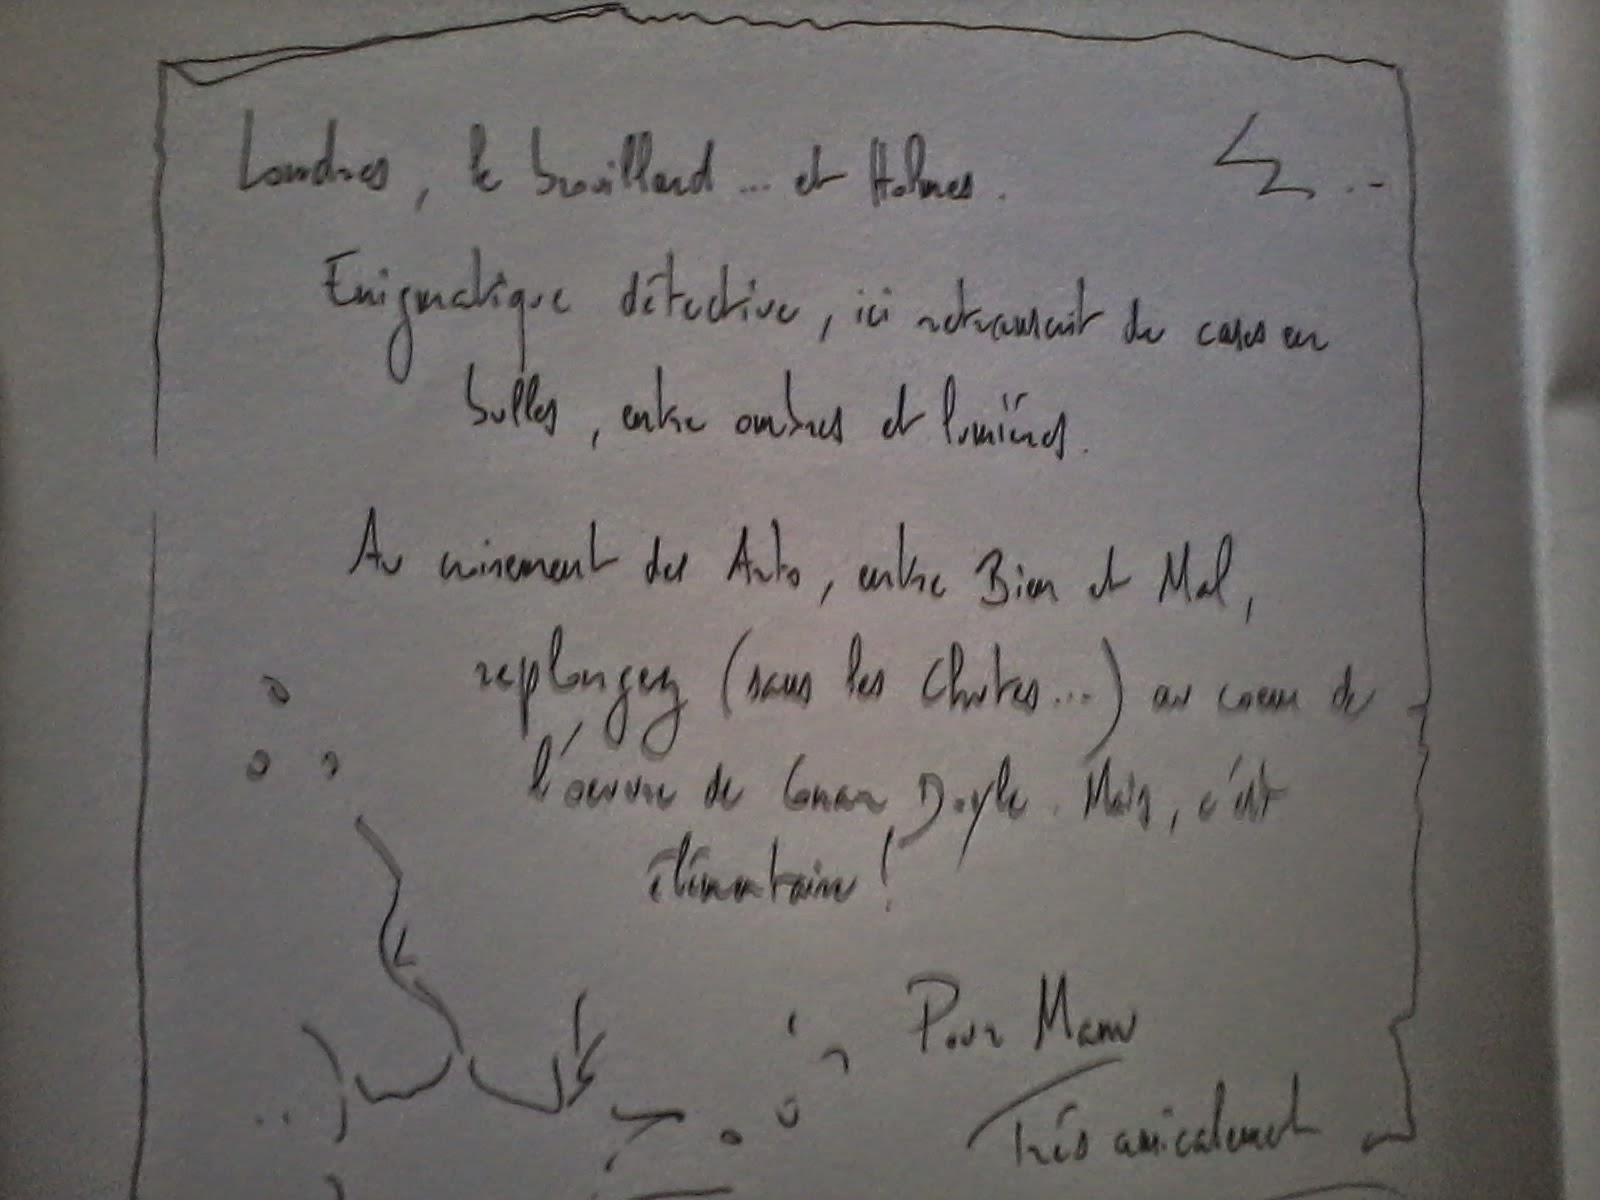 Londres, le brouillard ... et Holmes.
Enigmatique détective, ici retranscrit de cases en
bulles, entre ombres et lumières.
Au croisement des Arts, entre Bien et Mal,
replongez (sans les Chutes...) au coeur de
l'oeuvre de Conan Doyle. Mais, c'est
élémentaire !
Pour Manu
Très amicalement